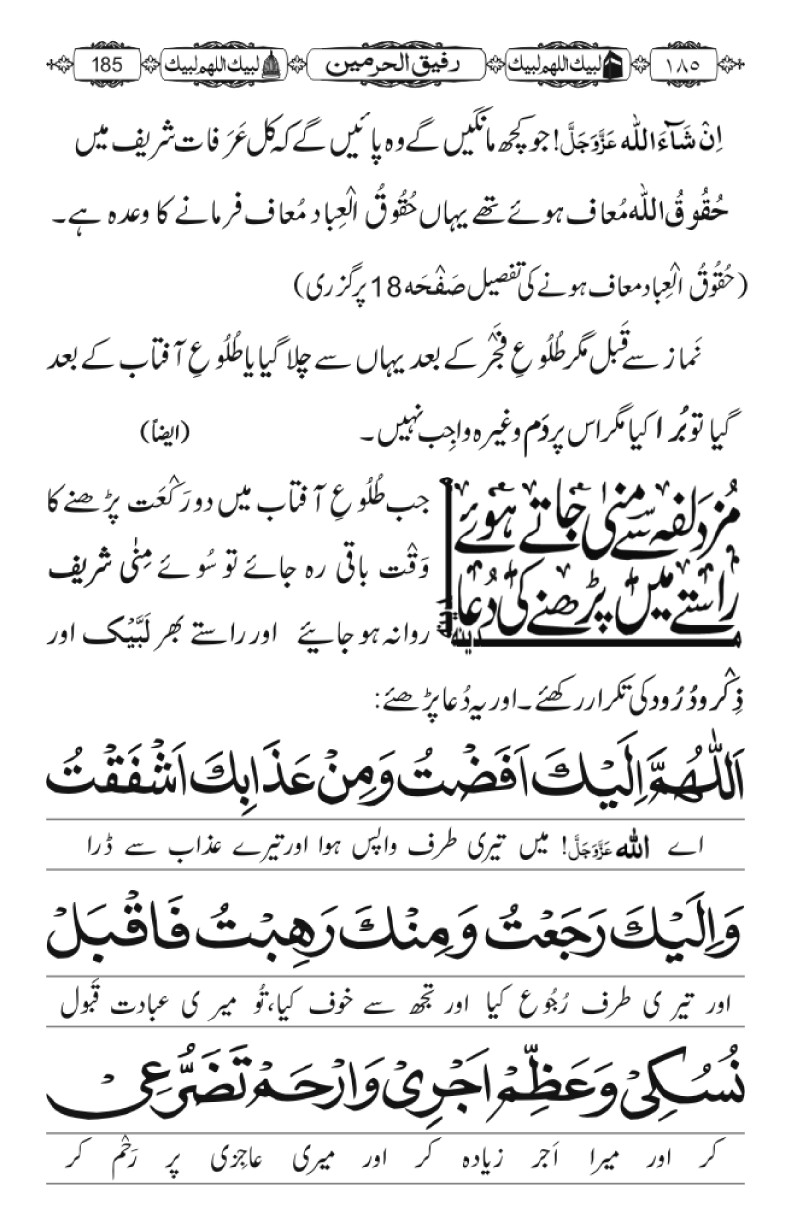 ۱۸۵ لبیك اللهم لبیك رفیق الحرمین لبیك اللهم لبیك 185
اِنْ شَآءَ اللہ عَزَّوَجَلَّ! جو کچھ مانگیں گے وہ پائیں گے کہ کل عَرَفات شریف میں
حُقُوقُ اللہ مُعاف ہوئے تھے یہاں حُقُوقُ الْعِباد مُعاف فرمانے کا وعدہ ہے۔
(حُقُوقُ الْعِباد معاف ہونے کی تفصیل صَفْحَہ 18 پر گزری)
نَماز سے قَبل مگر طُلُوعِ فَجْر کے بعد یہاں سے چلا گیا یا طُلُوعِ آفتاب کے بعد
گیا تو بُرا کیا مگر اس پر دَم وغیرہ واجِب نہیں۔ (ایضاً)
مُزدَلفہ سے مِنیٰ جاتے ہوئے
راستے میں پڑھنے کی دُعا
مدینہ مدینہ
جب طُلُوعِ آفتاب میں دو رَکْعَت پڑھنے کا
وَقْت باقی رہ جائے تو سُوئے مِنٰی شریف
روانہ ہو جایئے اور راستے بھر لَبَّیْک اور
ذِکْر و دُرُود کی تکرار رکھئے۔ اور یہ دُعا پڑھئے:
اَللّٰهُمَّ اِلَيْكَ اَفَضْتُ وَمِنْ عَذَابِكَ اَشْفَقْتُ
اے اللہ عَزَّوَجَلَّ! میں تیری طرف واپس ہوا اور تیرے عذاب سے ڈرا
وَاِلَيْكَ رَجَعْتُ وَمِنْكَ رَهِبْتُ فَاقْبَلْ
اور تیری طرف رُجُوع کیا اور تجھ سے خوف کیا، تُو میری عبادت قَبول
نُسُكِيْ وَعَظِّمْ اَجْرِيْ وَارْحَمْ تَضَرُّعِيْ
کر اور میرا اَجر زیادہ کر اور میری عاجِزی پر رَحْم کر